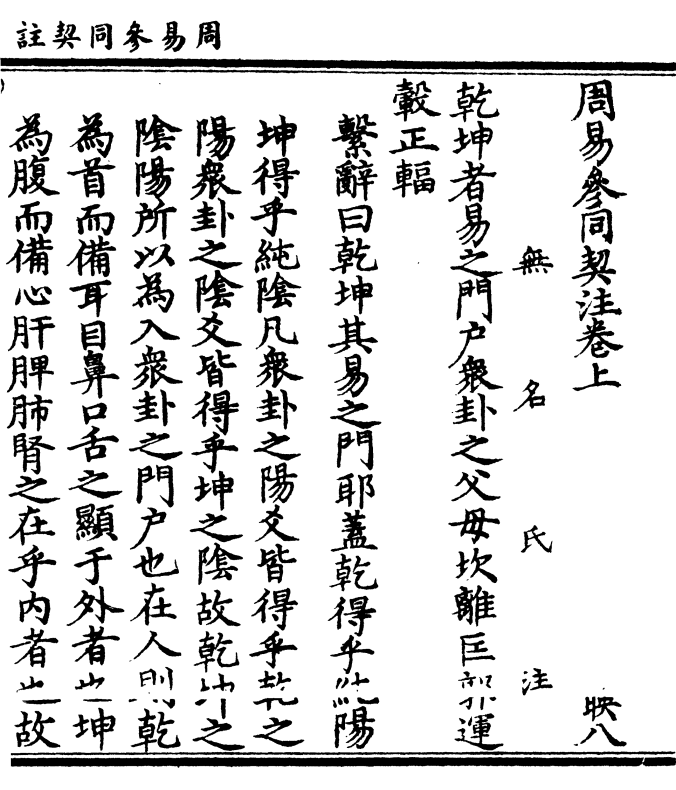 周易參同契註
周易參同契注卷上 映八
無名氏注
乾坤者易之門户衆卦之父母坎離匡郭運
轂正輻
繫辭曰乾坤其易之門耶蓋乾得乎純陽
坤得乎純陰凡衆卦之陽爻皆得乎乾之
陽衆卦之陰爻皆得乎坤之陰故乾坤之
陰陽所以為入衆卦之門户也在人則乾
為首而備耳目鼻口舌之顯于外者也坤
為腹而備心肝脾肺腎之在乎内者也故